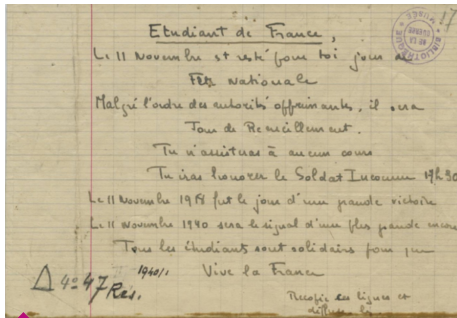 Etudiant de France,
Le 11 Novembre est resté pour toi jour de
Fête Nationale
Malgré l'ordre des autorités opprimantes, il sera
Jour de Recueillement.
Tu n'assisteras à aucun cours
Tu iras honorer le Soldat Inconnu 17h30
Le 11 Novembre 1918 fut le jour d'une grande victoire
Le 11 novembre 1940 sera le signal d'une plus grande encore
Tous les étudiants sont solidaires pour que
Vive la France
Recopie ces lignes et
diffuse les
Δ 4° 47 Rés.
1940/1
17
BIBLIOTHÈQUE